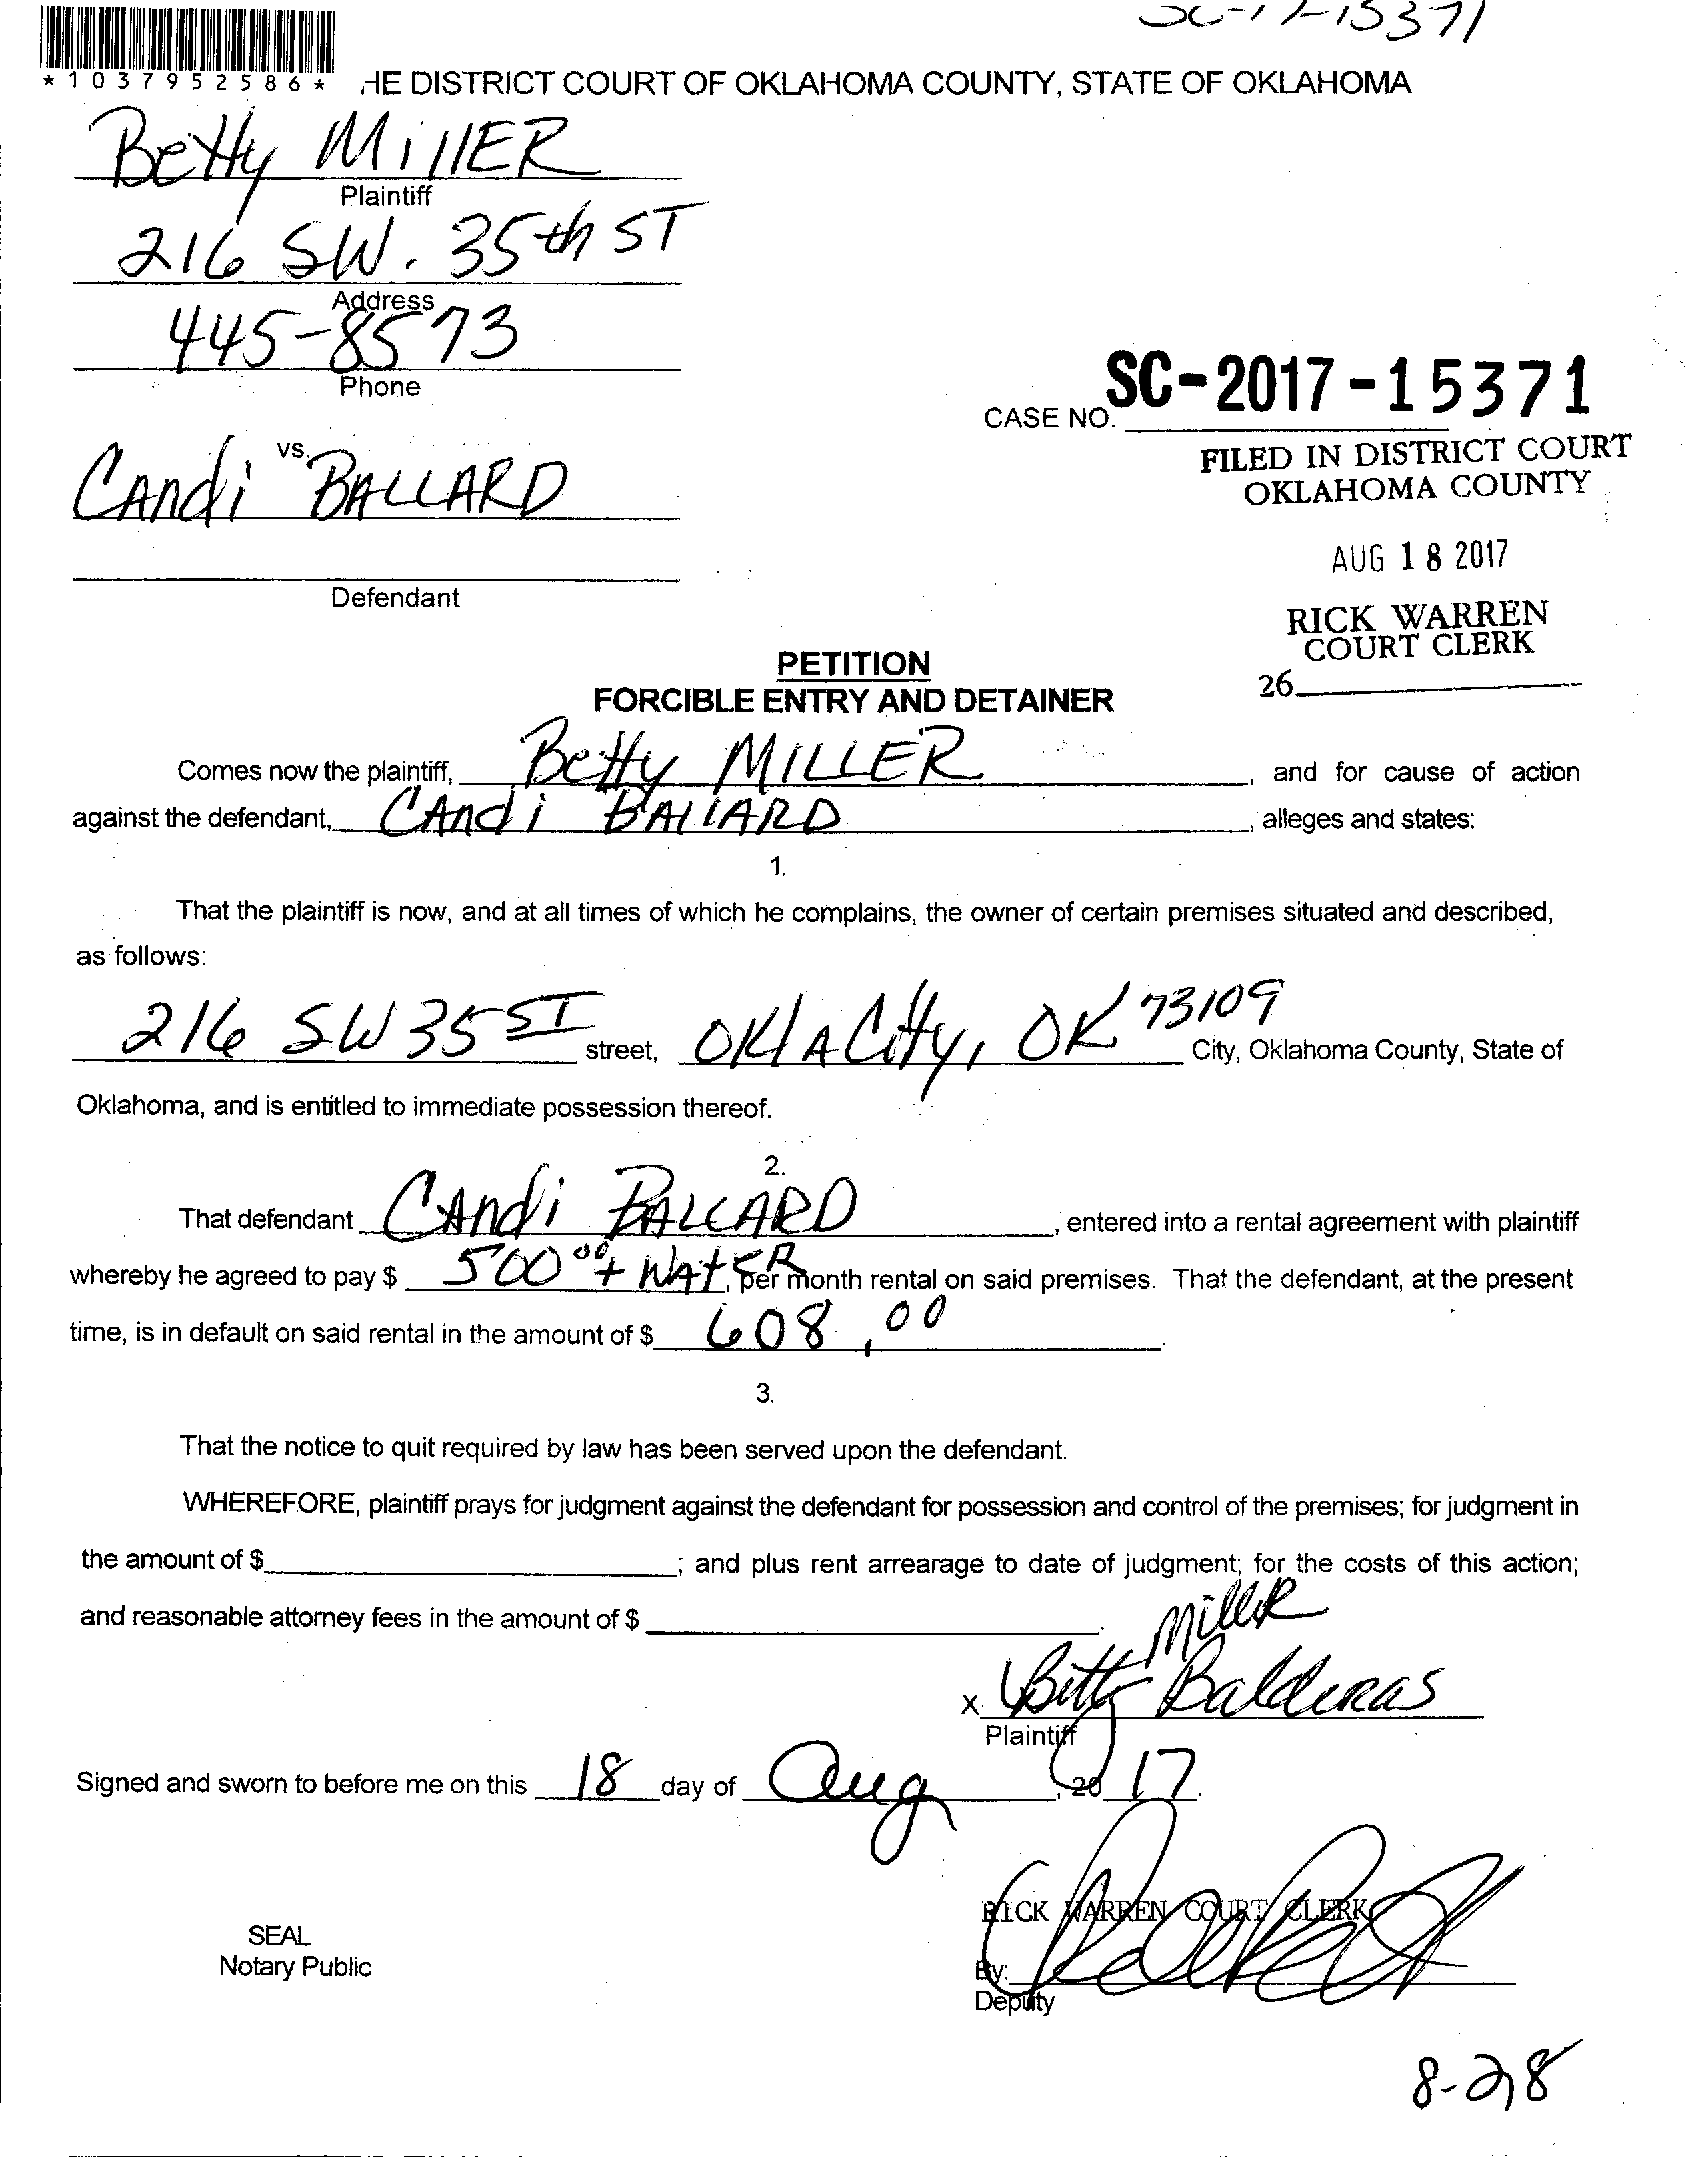 SC-17-15371
*1037952586* HE DISTRICT COURT OF OKLAHOMA COUNTY, STATE OF OKLAHOMA
Betty MillER
Plaintiff
216 SW. 35th ST
Address
445-8573
Phone
SC-2017-15371
CASE NO.
FILED IN DISTRICT COURT
OKLAHOMA COUNTY
vs.
CAndi BALLARD
AUG 18 2017
Defendant
RICK WARREN
COURT CLERK
26
PETITION
FORCIBLE ENTRY AND DETAINER
Comes now the plaintiff, Betty MILLER, and for cause of action
against the defendant, CAndi BAllARD, alleges and states:
1.
That the plaintiff is now, and at all times of which he complains, the owner of certain premises situated and described,
as follows:
216 SW 35 ST street, OKlA City, OK 73109 City, Oklahoma County, State of
Oklahoma, and is entitled to immediate possession thereof.
2.
That defendant CAndi BALLARD, entered into a rental agreement with plaintiff
whereby he agreed to pay $ 500 00 + WAtER, per month rental on said premises. That the defendant, at the present
time, is in default on said rental in the amount of $ 608,00
3.
That the notice to quit required by law has been served upon the defendant.
WHEREFORE, plaintiff prays for judgment against the defendant for possession and control of the premises; for judgment in
the amount of $; and plus rent arrearage to date of judgment; for the costs of this action;
and reasonable attorney fees in the amount of $
Miller
x Betty Balderas
Plaintiff
Signed and sworn to before me on this 18 day of Aug, 20 17.
RICK WARREN COURT CLERK
SEAL
Notary Public
By:
Deputy
8-28